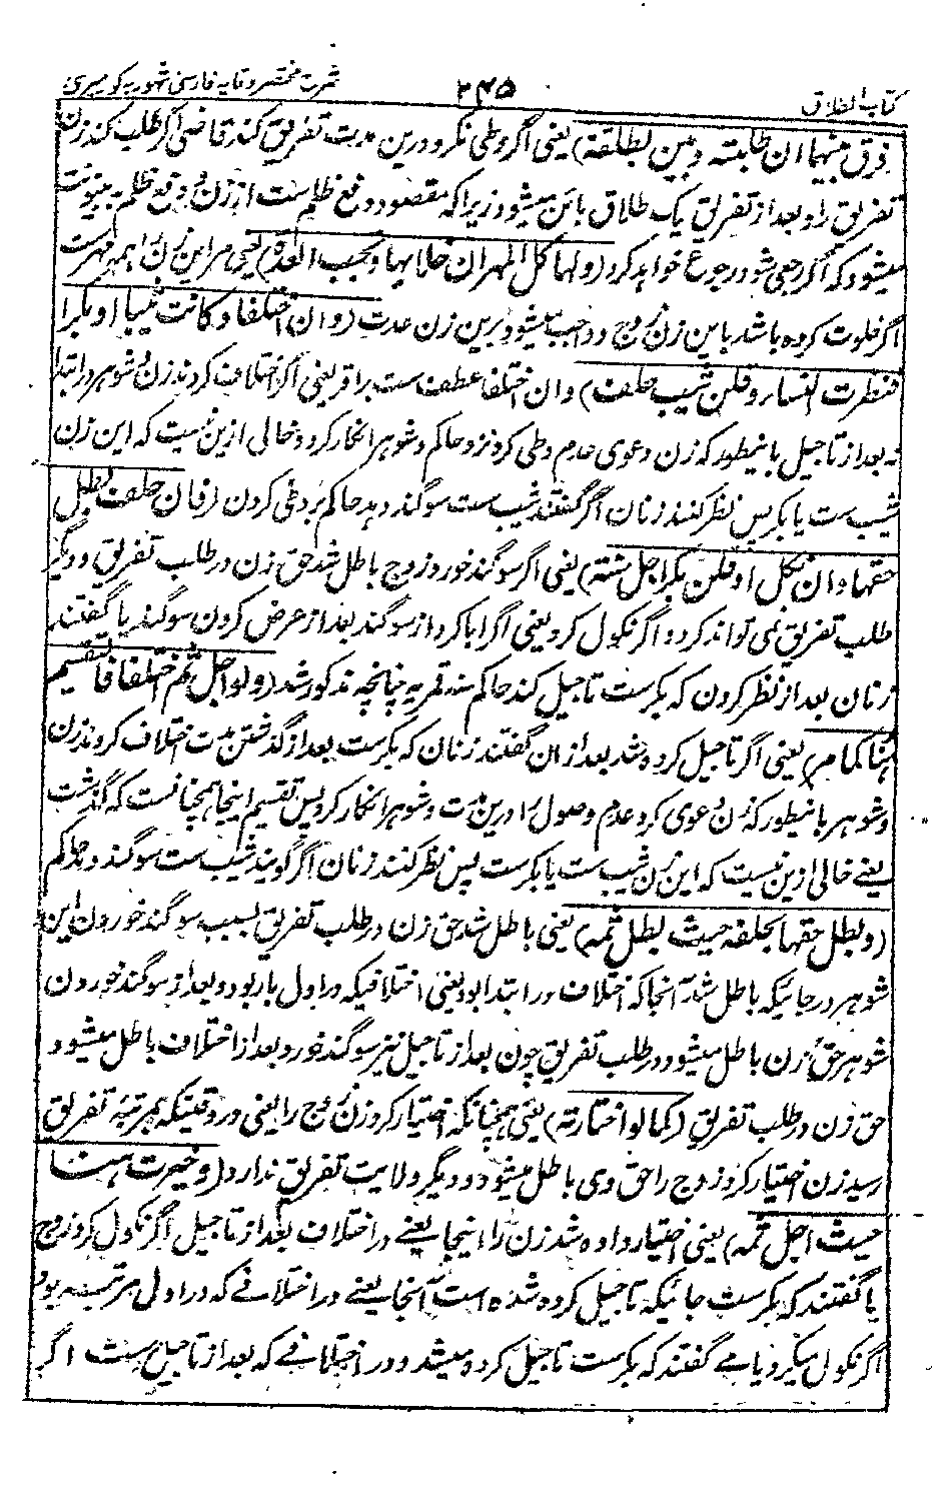 کتاب الطلاق
۲۴۵
شرح مختصر وقایه فارسی مشهور به کومیری
فرق بینهما ان طلبته وتبین بطلقة) یعنی اگر وطی نکرد درین مدت تفریق کند قاضی اگر طلب کند زن
تفریق را و بعد از تفریق یک طلاق بائن میشود زیرا که مقصود دفع ظلم ست از زن و دفع ظلم به بینونت
میشود که اگر رجعی شود رجوع خواهد کرد (ولها کل المهر ان خلا بها وتجب العدة) یعنی مر این زن را همه مهرست
اگر خلوت کرده باشد باین زن زوج و واجب میشود برین زن عدت (وان اختلفا وکانت ثیبا او بکرا
فنظرت النساء وقلن ثیب حلف) وان اختلفا عطف ست بر اقر یعنی اگر اختلاف کردند زن و شوهر در ابتدا
نه بعد از تاجیل بانیطور که زن دعوی عدم وطی کرد نزد حاکم و شوهر انکار کرد و خالی ازین نیست که این زن
ثیب ست یا بکر پس نظر کنند زنان اگر گفتند ثیب ست سوگند دهد حاکم بر وطی کردن (فان حلف بطل
حقها وان نکل او قلن بکر اجل سنة) یعنی اگر سوگند خورد زوج باطل شد حق زن در طلب تفریق و دیگر
طلب تفریق نمی تواند کرد و اگر نکول کرد یعنی اگر ابا کرد از سوگند بعد از عرض کردن سوگند یا گفتند
زنان بعد از نظر کردن که بکرست تاجیل کند حاکم سنه قمریه چنانچه مذکور شد (ولو اجل ثم اختلفا فالتقسیم
هنا کما مر) یعنی اگر تاجیل کرده شد بعد از ان گفتند زنان که بکرست بعد از گذشتن مدت اختلاف کردند زن
و شوهر بانیطور که زن دعوی کرد عدم وصول را درین مدت و شوهر انکار کرد پس تقسیم اینجا همچنانست که گذشت
یعنی خالی ازین نیست که این زن ثیب ست یا بکرست پس نظر کنند زنان اگر گویند ثیب ست سوگند دهد حاکم
(وبطل حقها بحلفه حیث بطل ثمه) یعنی باطل شد حق زن در طلب تفریق بسبب سوگند خوردن این
شوهر در جائیکه باطل شد آنجا که اختلاف در ابتدا بود یعنی اختلافیکه در اول بار بود و بعد از سوگند خوردن
شوهر حق زن باطل میشود در طلب تفریق چون بعد از تاجیل نیز سوگند خورد بعد از اختلاف باطل میشود
حق زن در طلب تفریق (کما لو اختارته) یعنی همچنانکه اختیار کرد زن زوج را یعنی در وقتیکه بمرتبه تفریق
رسید زن اختیار کرد زوج را حق وی باطل میشود و دیگر ولایت تفریق ندارد (وخیرت هنا
حیث اجل ثمه) یعنی اختیار داده شد زن را اینجا یعنے در اختلاف بعد از تاجیل اگر نکول کرد زوج
یا گفتند که بکرست جائیکه تاجیل کرده شده است آنجا یعنے در اختلافے که در اول مرتبه بود
اگر نکول میکرد یا مے گفتند که بکرست تاجیل کرده میشد و در اختلافے که بعد از تاجیل ست اگر